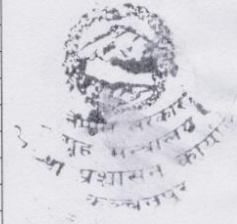 सरकार
गृह मन्त्रालय
प्रशासन कार्या
कञ्चनपुर